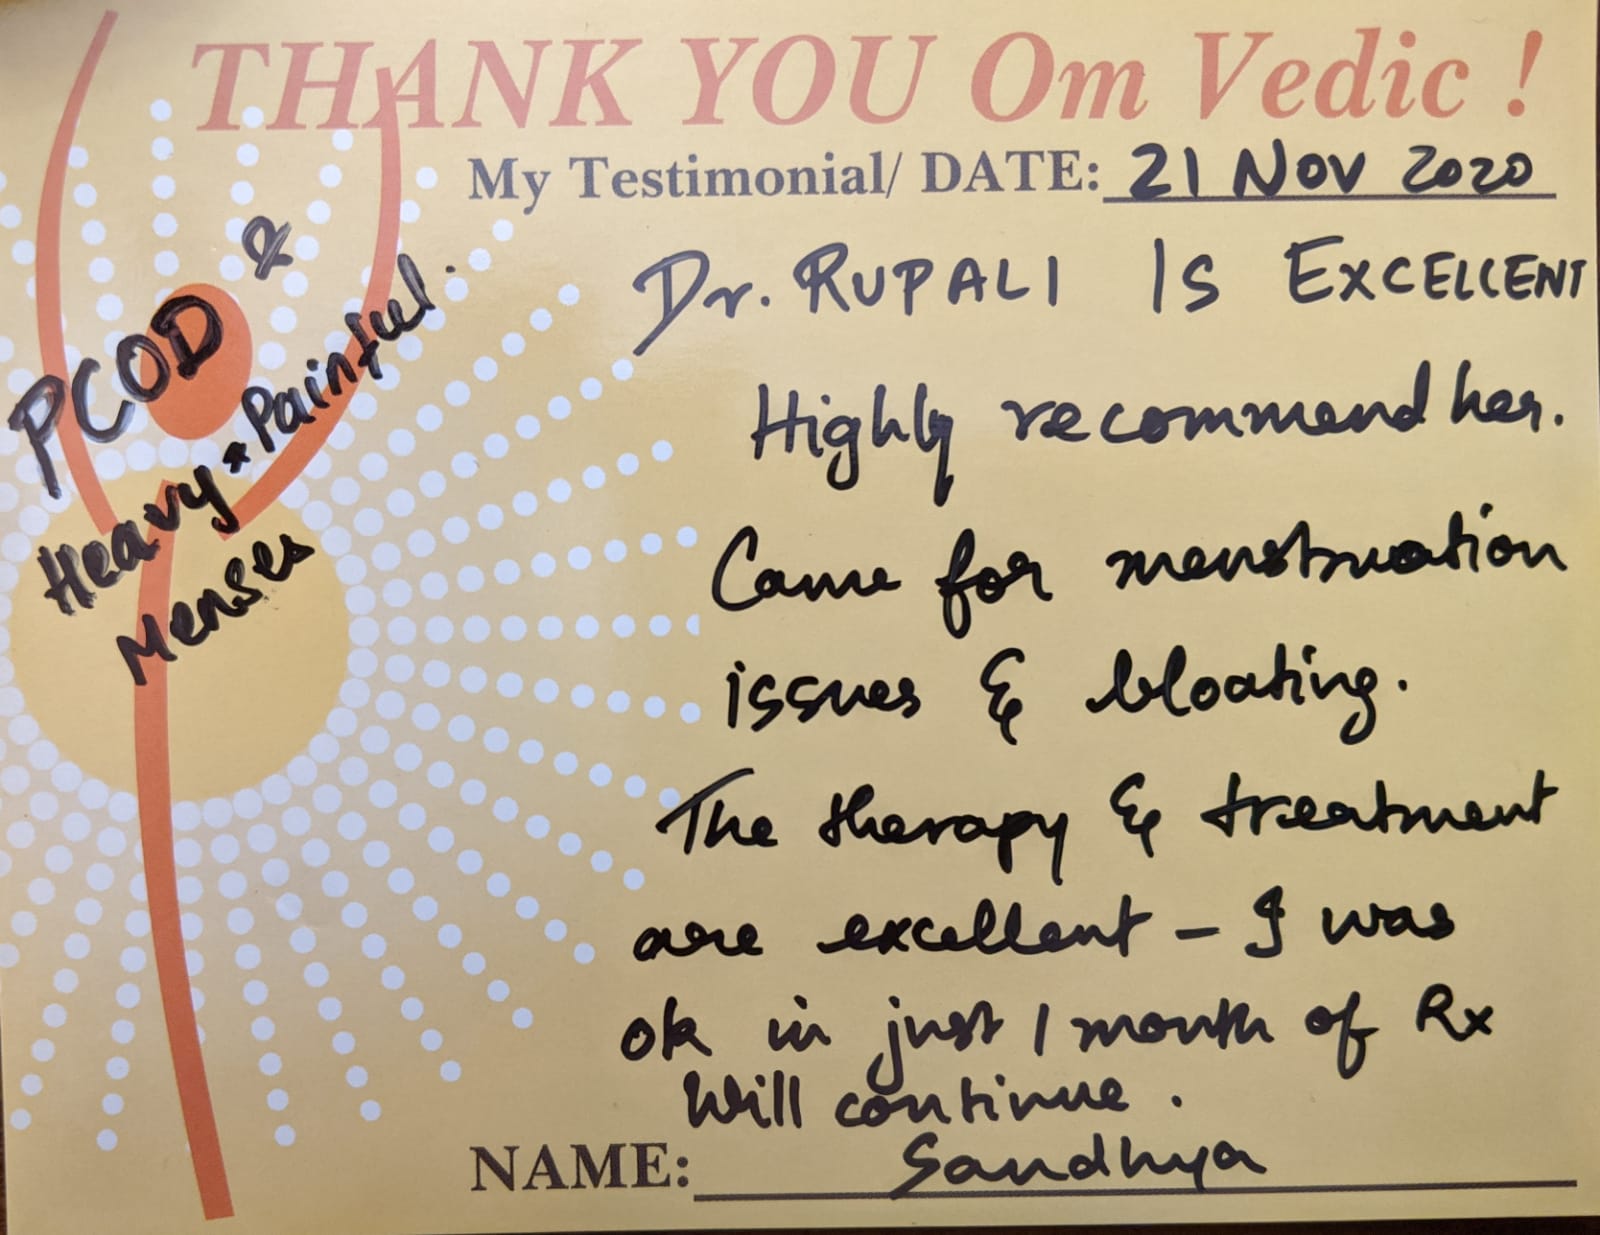 THANK YOU Om Vedic !
My Testimonial/ DATE: 21 Nov 2020
PCOD &
Heavy & Painful.
Menses
Dr. RUPALI IS EXCELLENT
Highly recommend her.
Came for menstruation
issues & bloating.
The therapy & treatment
are excellent - I was
ok in just 1 month of Rx
Will continue.
NAME: Sandhya